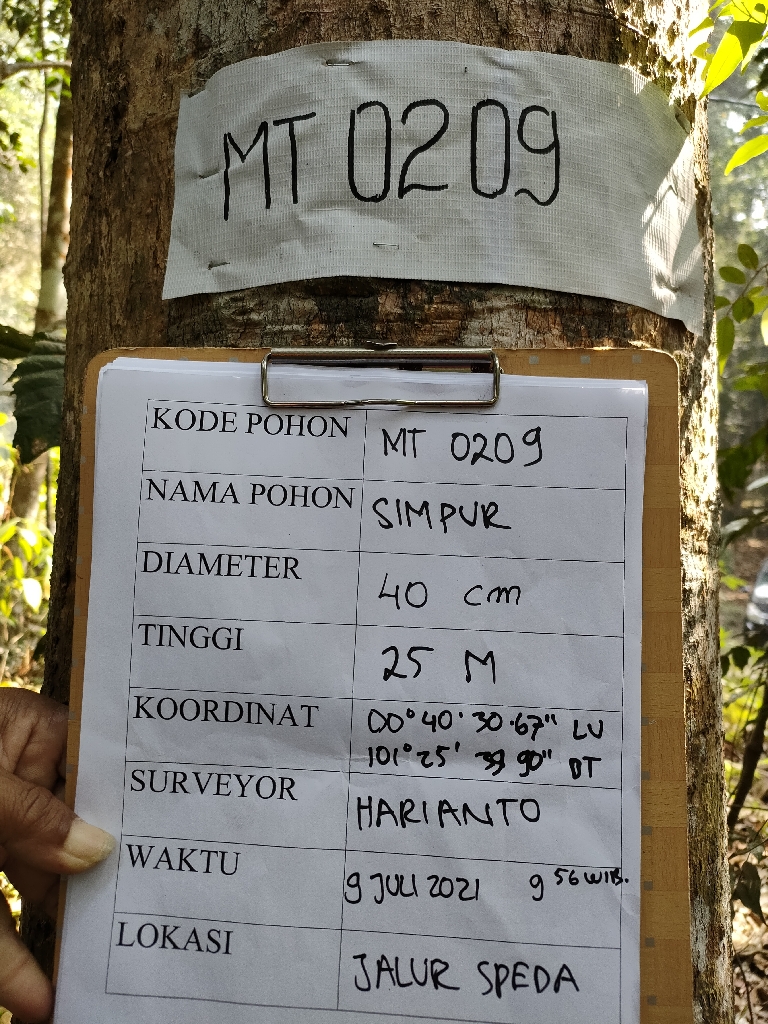 MT 0209
KODE POHON MT 0209
NAMA POHON SIMPUR
DIAMETER 40 cm
TINGGI 25 M
KOORDINAT 00° 40' 30.67" LU
101° 25' 39 90" BT
SURVEYOR HARIANTO
WAKTU 9 JULI 2021 9 56 WIB.
LOKASI JALUR SPEDA